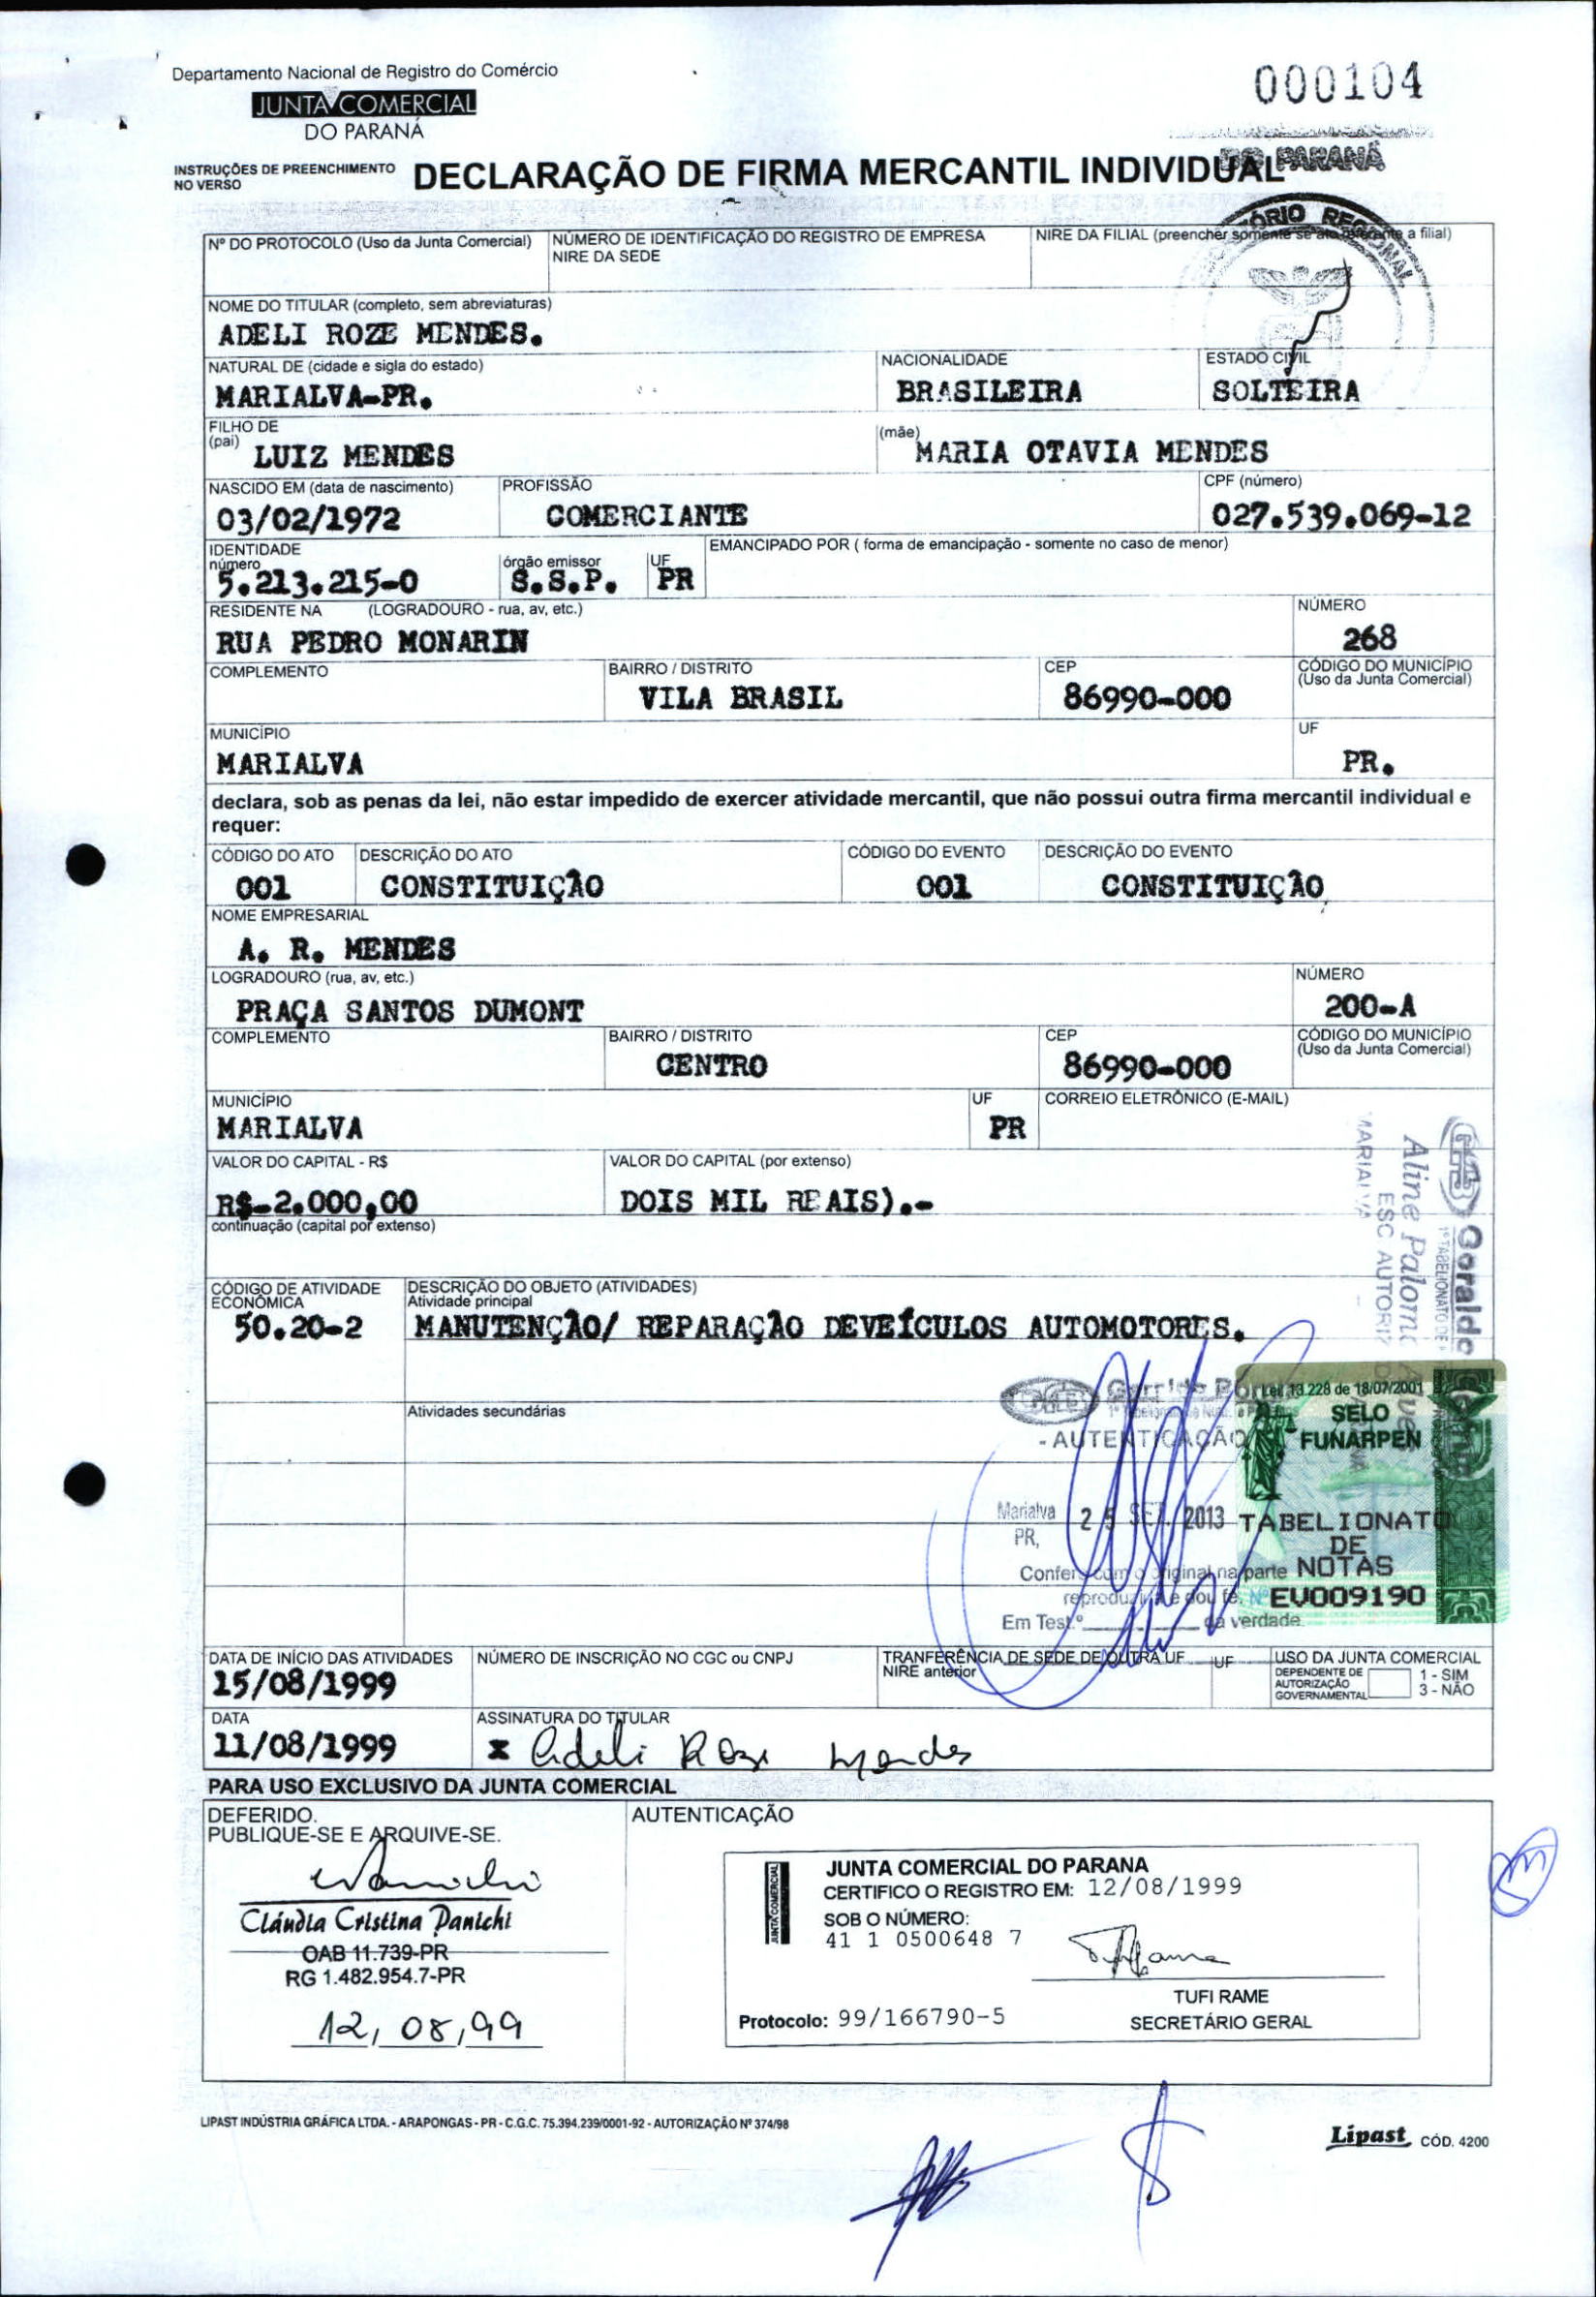 Departamento Nacional de Registro do Comércio
JUNTA COMERCIAL
DO PARANÁ
000104
INSTRUÇÕES DE PREENCHIMENTO
NO VERSO
DECLARAÇÃO DE FIRMA MERCANTIL INDIVIDUAL
DO PARANÁ
Nº DO PROTOCOLO (Uso da Junta Comercial)
NÚMERO DE IDENTIFICAÇÃO DO REGISTRO DE EMPRESA
NIRE DA SEDE
NIRE DA FILIAL (preencher somente se ato referente a filial)
NOME DO TITULAR (completo, sem abreviaturas)
ADELI ROZE MENDES.
NATURAL DE (cidade e sigla do estado)
MARIALVA-PR.
NACIONALIDADE
BRASILEIRA
ESTADO CIVIL
SOLTEIRA
FILHO DE
(pai) LUIZ MENDES
(mãe) MARIA OTAVIA MENDES
NASCIDO EM (data de nascimento)
03/02/1972
PROFISSÃO
COMERCIANTE
CPF (número)
027.539.069-12
IDENTIDADE
número
5.213.215-0
órgão emissor
S.S.P.
UF
PR
EMANCIPADO POR ( forma de emancipação - somente no caso de menor)
RESIDENTE NA (LOGRADOURO - rua, av, etc.)
RUA PEDRO MONARIN
NÚMERO
268
COMPLEMENTO
BAIRRO / DISTRITO
VILA BRASIL
CEP
86990-000
CÓDIGO DO MUNICÍPIO
(Uso da Junta Comercial)
MUNICÍPIO
MARIALVA
UF
PR.
declara, sob as penas da lei, não estar impedido de exercer atividade mercantil, que não possui outra firma mercantil individual e
requer:
CÓDIGO DO ATO
001
DESCRIÇÃO DO ATO
CONSTITUIÇÃO
CÓDIGO DO EVENTO
001
DESCRIÇÃO DO EVENTO
CONSTITUIÇÃO
NOME EMPRESARIAL
A. R. MENDES
LOGRADOURO (rua, av, etc.)
PRAÇA SANTOS DUMONT
NÚMERO
200-A
COMPLEMENTO
BAIRRO / DISTRITO
CENTRO
CEP
86990-000
CÓDIGO DO MUNICÍPIO
(Uso da Junta Comercial)
MUNICÍPIO
MARIALVA
UF
PR
CORREIO ELETRÔNICO (E-MAIL)
VALOR DO CAPITAL - R$
R$-2.000,00
VALOR DO CAPITAL (por extenso)
DOIS MIL REAIS).-
continuação (capital por extenso)
CÓDIGO DE ATIVIDADE
ECONÔMICA
50.20-2
DESCRIÇÃO DO OBJETO (ATIVIDADES)
Atividade principal
MANUTENÇÃO/ REPARAÇÃO DEVEÍCULOS AUTOMOTORES.
Atividades secundárias
Aline Paloma
ESC AUTORIZ
- AUTENTICAÇÃO
Marialva
PR,
25 SET. 2013
Confere com o original na parte
reproduzida e dou fé.
Em Test.º da verdade
Lei 13.228 de 18/07/2001
SELO
FUNARPEN
TABELIONATO
DE
NOTAS
Nº EV009190
DATA DE INÍCIO DAS ATIVIDADES
15/08/1999
NÚMERO DE INSCRIÇÃO NO CGC ou CNPJ
TRANFERÊNCIA DE SEDE DE OUTRA UF
NIRE anterior
UF
USO DA JUNTA COMERCIAL
DEPENDENTE DE
AUTORIZAÇÃO
GOVERNAMENTAL
1 - SIM
3 - NÃO
DATA
11/08/1999
ASSINATURA DO TITULAR
x Adeli Roze Mendes
PARA USO EXCLUSIVO DA JUNTA COMERCIAL
DEFERIDO.
PUBLIQUE-SE E ARQUIVE-SE.
Cláudia Cristina Panichi
OAB 11.739-PR
RG 1.482.954.7-PR
12, 08, 99
AUTENTICAÇÃO
JUNTA COMERCIAL
JUNTA COMERCIAL DO PARANA
CERTIFICO O REGISTRO EM: 12/08/1999
SOB O NÚMERO:
41 1 0500648 7
Protocolo: 99/166790-5
TUFI RAME
SECRETÁRIO GERAL
LIPAST INDÚSTRIA GRÁFICA LTDA. - ARAPONGAS - PR - C.G.C. 75.394.239/0001-92 - AUTORIZAÇÃO Nº 374/98
Lipast CÓD. 4200